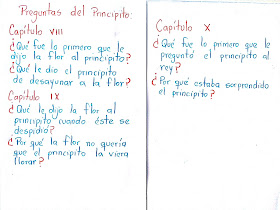 Preguntas del Principito:
Capítulo VIII
¿Qué fue lo primero que le
dijo la flor al principito?
¿Qué le dio el principito
de desayunar a la flor?
Capítulo IX
¿Qué le dijo la flor al
principito cuando éste se
despidió?
¿Por qué la flor no quería
que el principito la viera
llorar?
Capítulo X
¿Qué fue lo primero que le
preguntó el principito al
rey?
¿Por qué estaba sorprendido
el principito?